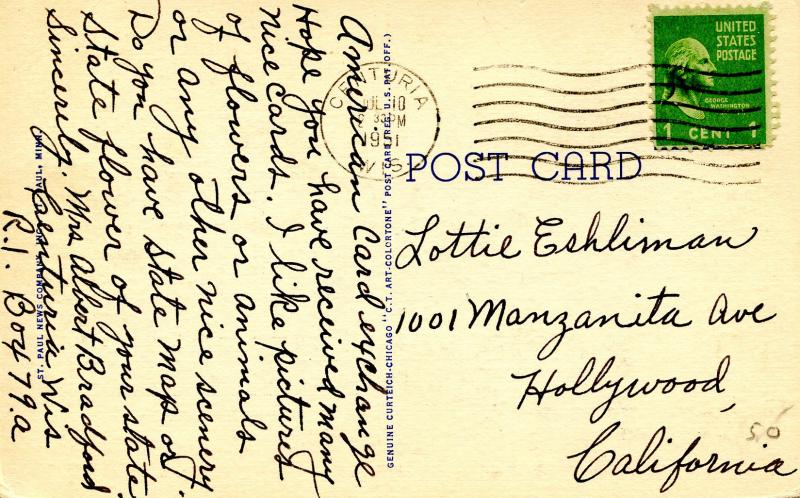 American Card exchange
Hope you have received many
nice cards. I like pictures
of flowers or animals
or any other nice scenery
Do you have state map or
State flower of your state.
Sincerily. Mrs Albert Bradford
Centuria Wis
R.1. Box 79.a
ST. PAUL NEWS COMPANY, ST. PAUL, MINN.
GENUINE CURTEICH-CHICAGO "C.T. ART-COLORTONE" POST CARD (REG. U.S. PAT. OFF.)
CENTURIA
JUL 10
PM
1951
WIS.
UNITED
STATES
POSTAGE
GEORGE
WASHINGTON
1 CENT 1
POST CARD
Lottie Eshliman
1001 Manzanita Ave
Hollywood,
California
50